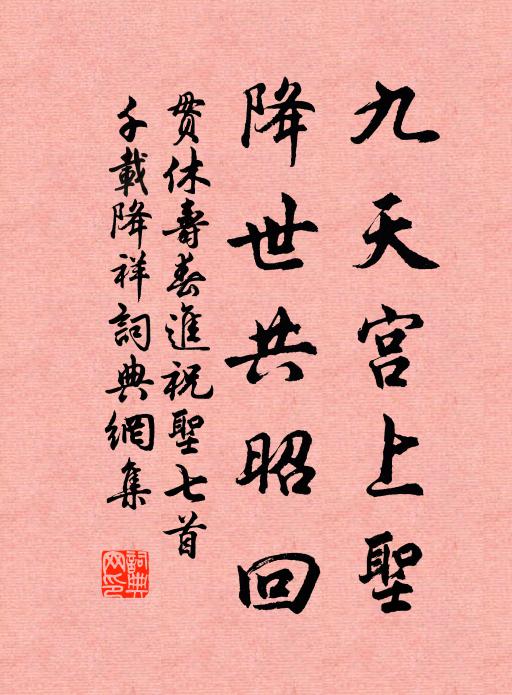 九天宮上聖
降世共昭回
貫休壽春進祝聖七首
千載降祥詞典網集
詞典網印